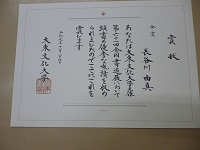 賞状
金賞
長谷川由真
あなたは大東文化大学主催
第六十一回全国書道展において
頭書の優秀な成績を収め
られましたのでここにこれを
賞します
大東文化大学